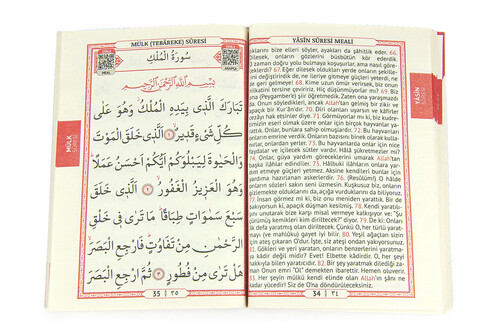 MÜLK (TEBÂREKE) SÛRESİ
سُورَةُ الْمُلْكِ
بِسْمِ اللّٰهِ الرَّحْمٰنِ الرَّحِيمِ
تَبَارَكَ الَّذِى بِيَدِهِ الْمُلْكُ وَهُوَ عَلٰى
كُلِّ شَىْءٍ قَدِيرٌ ﴿١﴾ اَلَّذِى خَلَقَ الْمَوْتَ
وَالْحَيٰوةَ لِيَبْلُوَكُمْ اَيُّكُمْ اَحْسَنُ عَمَلًا
وَهُوَ الْعَزِيزُ الْغَفُورُ ﴿٢﴾ اَلَّذِى خَلَقَ
سَبْعَ سَمٰوَاتٍ طِبَاقًا مَا تَرٰى فِى خَلْقِ
الرَّحْمٰنِ مِنْ تَفَاوُتٍ فَارْجِعِ الْبَصَرَ
هَلْ تَرٰى مِنْ فُطُورٍ ﴿٣﴾ ثُمَّ ارْجِعِ الْبَصَرَ
35 | ٣٥
MÜLK
YÂSÎN SÛRESİ MEALİ
ıklarını bize elleri söyler, ayakları da şâhitsik eder. 66.
O zaman doğru yolu bulmaya koşuşurlar, ama nasıl göre-
cekler? 67. Eğer dilesek oldukları yerde onların şekille-
rini değiştirirdik de, ne ileriye gitmeye güçleri yeterdi, ne
de geri gelmeye! 68. Kime uzun ömür verirsek, biz onun
hilkatini tersine çeviririz. Hiç düşünmüyorlar mı? 69. Biz
O'na (Peygamber'e) şiir öğretmedik. Zaten ona yaraşmazdı
da. Onun söyledikleri, ancak Allah'tan gelmiş bir zikir ve
apaçık bir Kur'ân'dır. 70. Diri olanları uyarsın ve kâfirler
azâbı hak etsinler diye. 71. Görmüyorlar mı ki, biz kudre-
timizin eseri olmak üzere onlar için birçok hayvanlar ya-
rattık. Onlar, bunlara sahip olmuşlardır. 72. Bu hayvanları
onların emrine verdik. Onların bazısını binek olarak kulla-
nırlar, bazısını da yerler. 73. Bu hayvanlarda onlar için nice
faydalar ve içilecek sütler vardır. Hâlâ şükretmezler mi?
74. Onlar, güya yardım göreceklerini umarak Allah'tan
başka ilahlar edindiler. 75. Hâlbuki ilahların onlara yar-
dım etmeye güçleri yetmez. Aksine kendileri bunlar için
yardıma hazırlanan askerlerdir. 76. (Resûlüm!) O hâlde
onların sözleri sakın seni üzmesin. Kuşkusuz biz, onların
gizlemekte olduklarını da, açığa vurduklarını da biliyoruz.
77. İnsan görmez mi ki, biz onu meniden yarattık. Bir de
bakıyorsun ki, apaçık düşman kesilmiş. 78. Kendi yaratılı-
şını unutarak bize karşı misal vermeye kalkışıyor ve: "Şu
çürümüş kemikleri kim diriltecek?" diyor. 79. De ki: Onları
ilk defa yaratmış olan diriltecek. Çünkü O, her türlü yarat-
mayı (ve mahlûku) gayet iyi bilir. 80. Yeşil ağaçtan sizin
için ateş çıkaran O'dur. İşte, siz ateşi ondan yakıyorsunuz.
81. Gökleri ve yeri yaratan, onların benzerlerini yaratma-
ya kâdir değil midir? Evet! Elbette kâdirdir. O, her şeyi
hakkıyla bilen yaratıcıdır. 82. Bir şey yaratmak dilediği za-
man Onun emri "Ol" demekten ibarettir. Hemen oluverir.
83. Her şeyin mülkü kendi elinde olan Allah'ın şânı ne
kadar yücedir! Siz de O'na döndürüleceksiniz.
34 | ٣٤
YÂSÎN